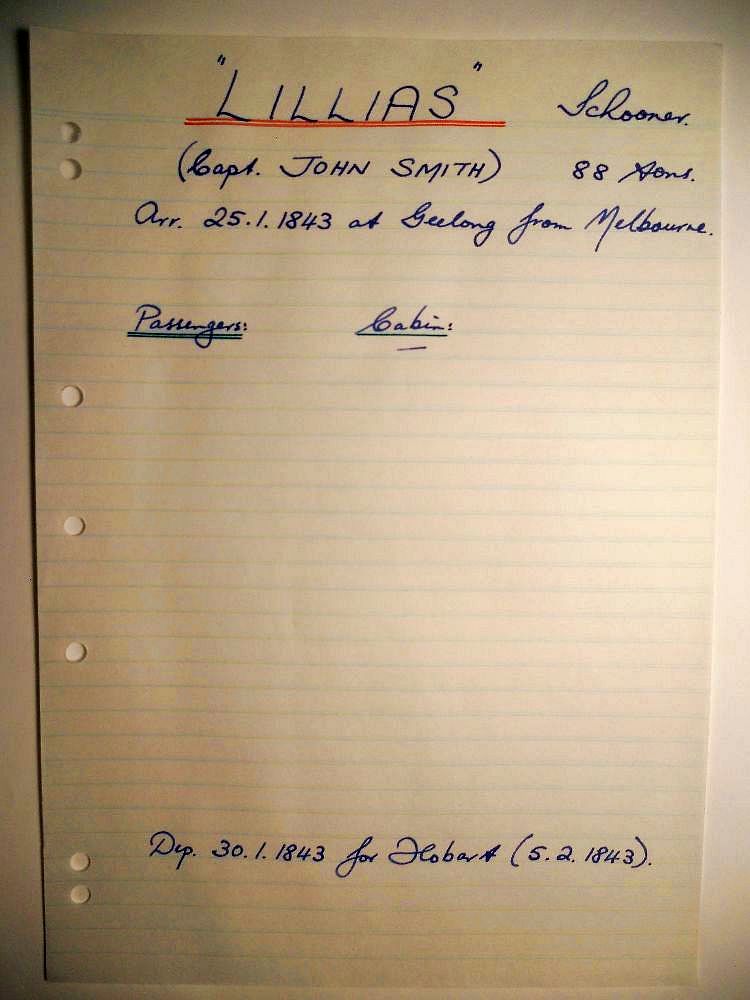 "LILLIAS" Schooner.
(Capt. JOHN SMITH) 88 tons.
Arr. 25.1.1843 at Geelong from Melbourne.
Passengers: Cabin:
—
Dep. 30.1.1843 for Hobart (5.2.1843).